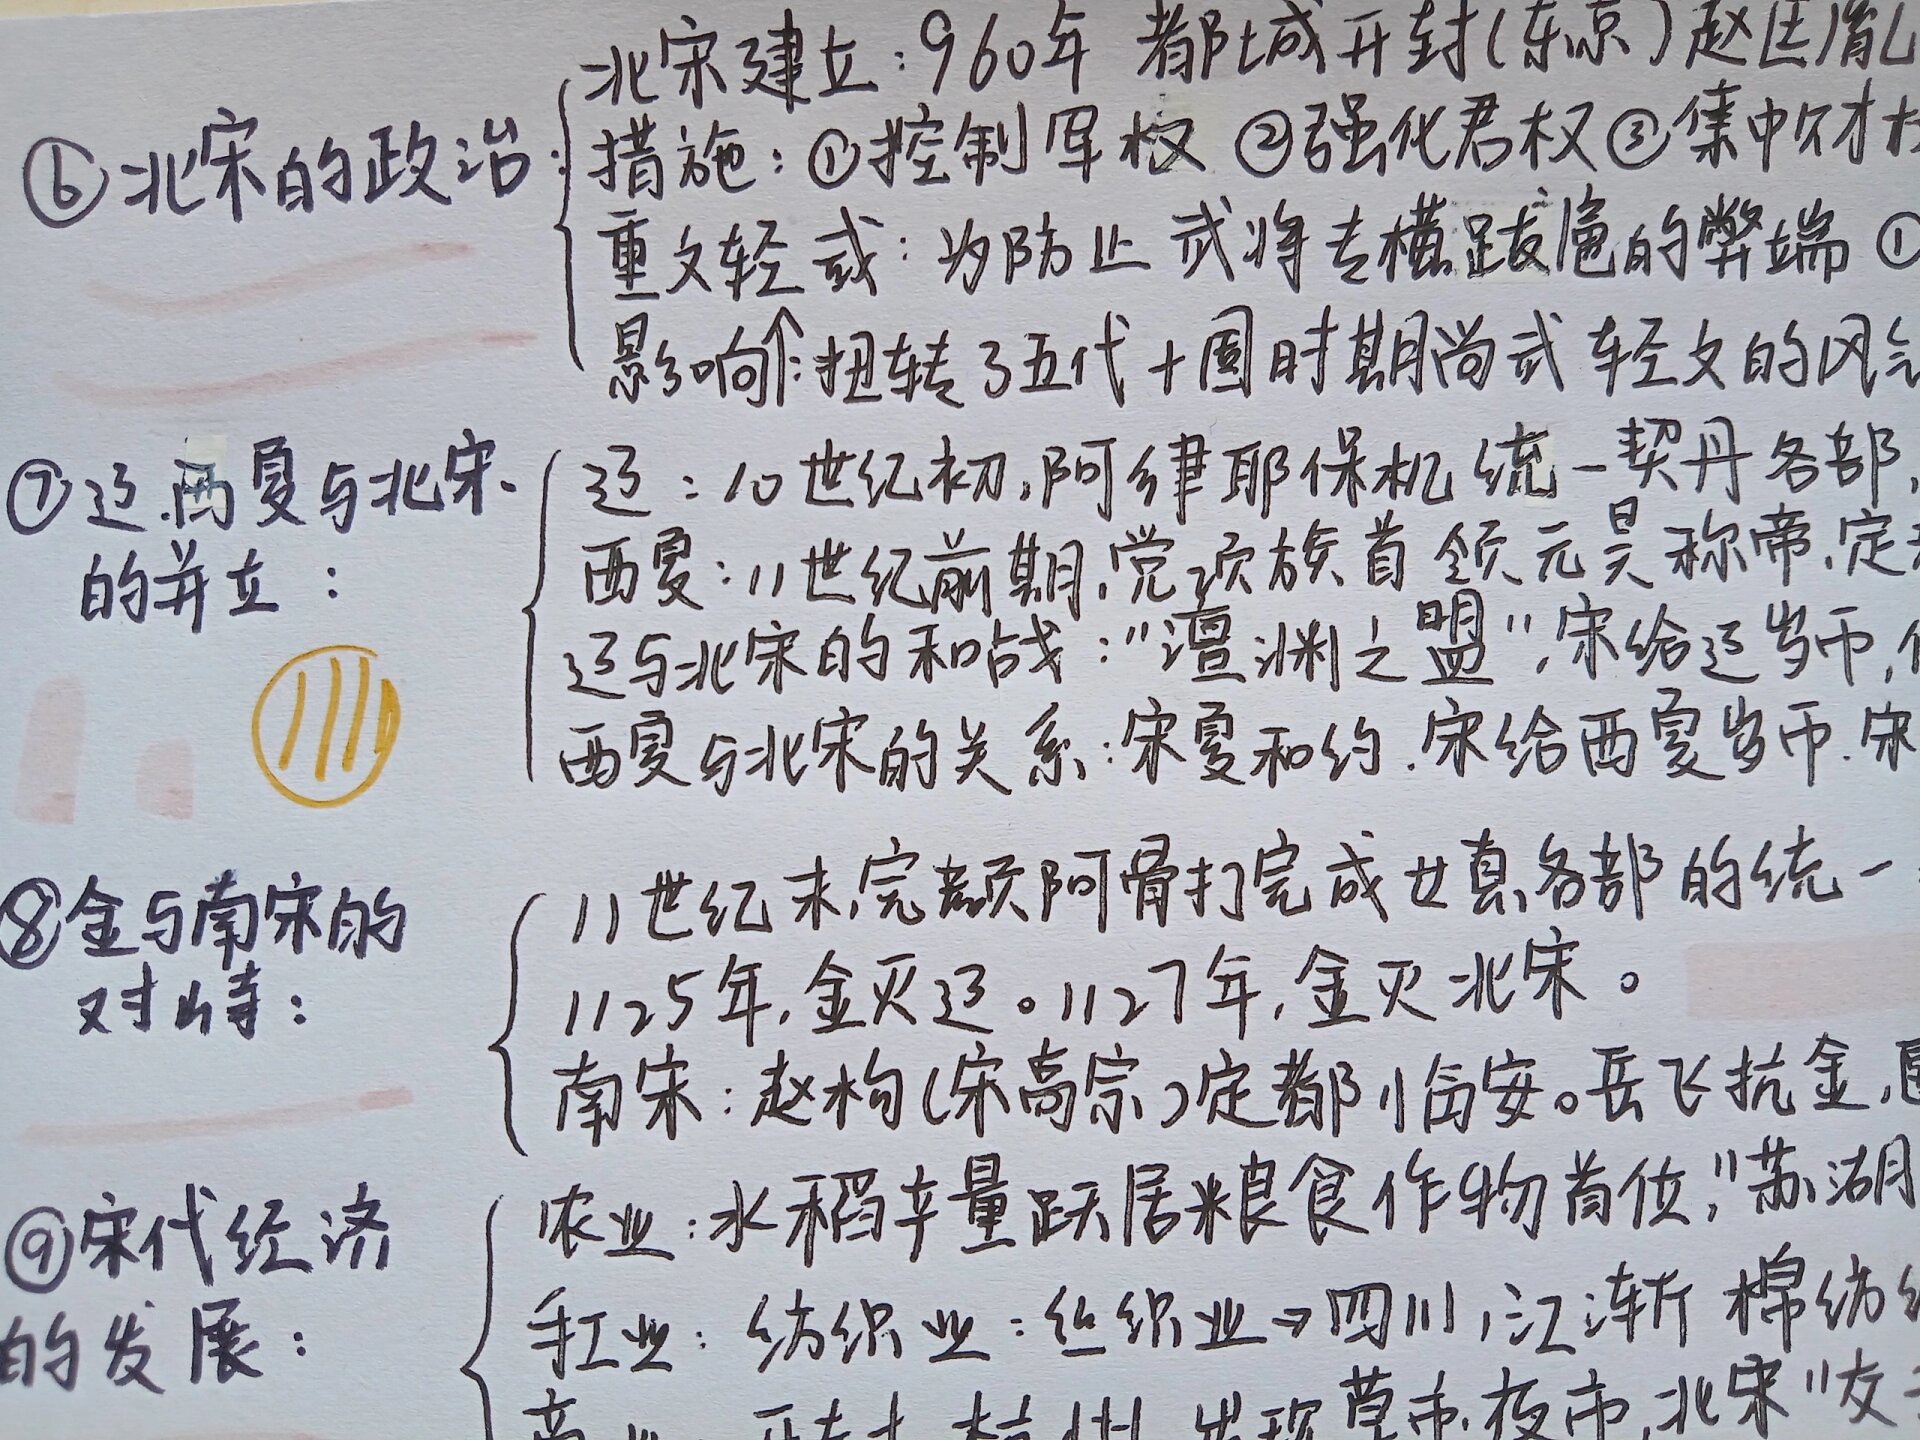 ⑥北宋的政治:
北宋建立:960年 都城开封(东京)赵匡胤
措施:①控制军权 ②强化君权③集中财权
重文轻武:为防止武将专横跋扈的弊端 ①
影响个:扭转了五代十国时期尚武轻文的风气
⑦辽.西夏与北宋
的并立:
辽:10世纪初,阿律耶保机统一契丹各部,
西夏:11世纪前期,党项族首领元昊称帝,定
辽与北宋的和战:"澶渊之盟",宋给辽岁币,
西夏与北宋的关系:宋夏和约.宋给西夏岁币.宋
⑧金与南宋的
对峙:
11世纪末,完颜阿骨打完成女真各部的统一
1125年,金灭辽。1127年,金灭北宋。
南宋:赵构(宋高宗)定都临安。岳飞抗金,
⑨宋代经济
的发展:
农业:水稻产量跃居粮食作物首位,"苏湖
手工业:纺织业:丝织业→四川,江浙 棉纺
商业:开封 杭州 出现草市,夜市,北宋"交子